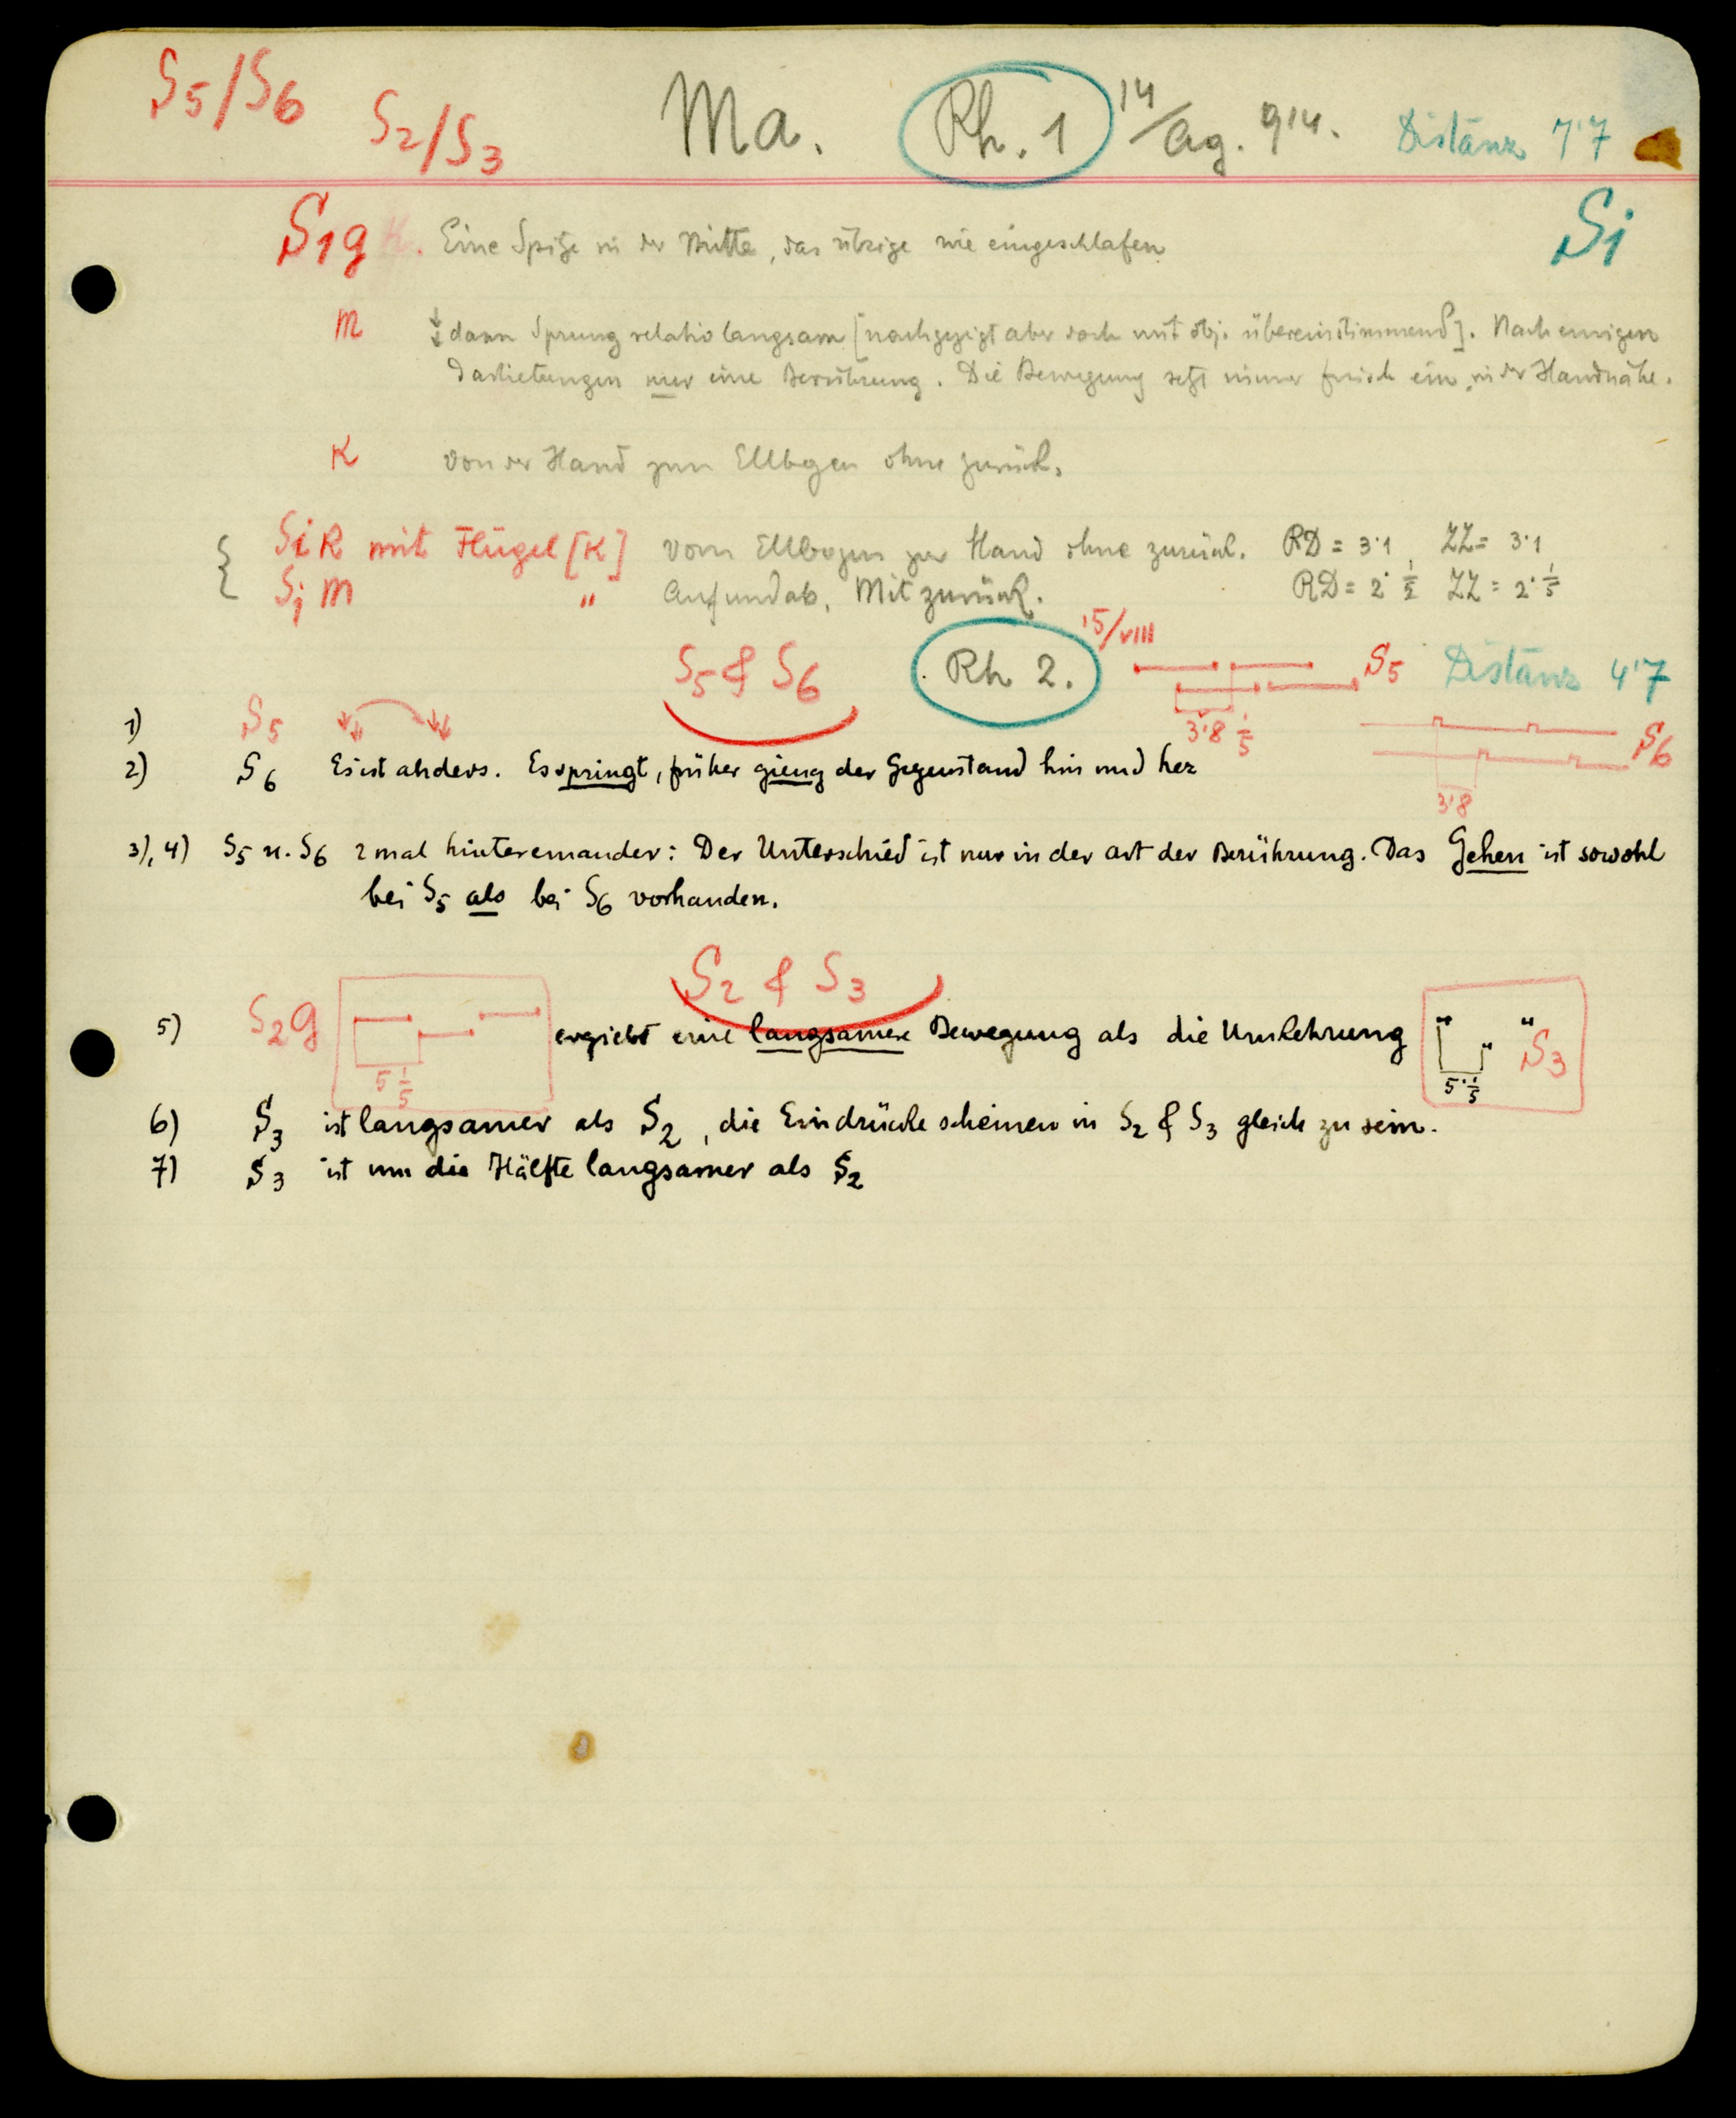 S5/S6 S2/S3 Ma. Rh. 1 14/Ag. 914. Distanz 7'7
S1g Eine Spitze in der Mitte, das übrige wie eingeschlafen Si
M dann Sprung relativ langsam [nachgezeigt aber doch mit obj. übereinstimmend]. Nach einigen
Darbietungen nur eine Berührung. Die Bewegung setzt immer frisch ein, in der Handnähe.
K von der Hand zum Ellbogen ohne zurück.
Si K mit Flügel [K] vom Ellbogen zur Hand ohne zurück. RD = 3'1 ZZ = 3'1
Si M " Auf und ab. Mit zurück. RD = 2' 1/2 ZZ = 2' 1/5
S5 & S6 Rh 2. 15/VIII S5 Distanz 4'7
1) S5 3'8 1/5 S6
2) S6 Es ist anders. Es springt, früher gieng der Gegenstand hin und her
3'8
3), 4) S5 u. S6 2 mal hintereinander: Der Unterschied ist nur in der Art der Berührung. Das Gehen ist sowohl
bei S5 als bei S6 vorhanden.
S2 & S3
5) S2g ergiebt eine langsamere Bewegung als die Umkehrung S3
5 1/5 5' 1/5
6) S3 ist langsamer als S2, die Eindrücke scheinen in S2 & S3 gleich zu sein.
7) S3 ist um die Hälfte langsamer als S2